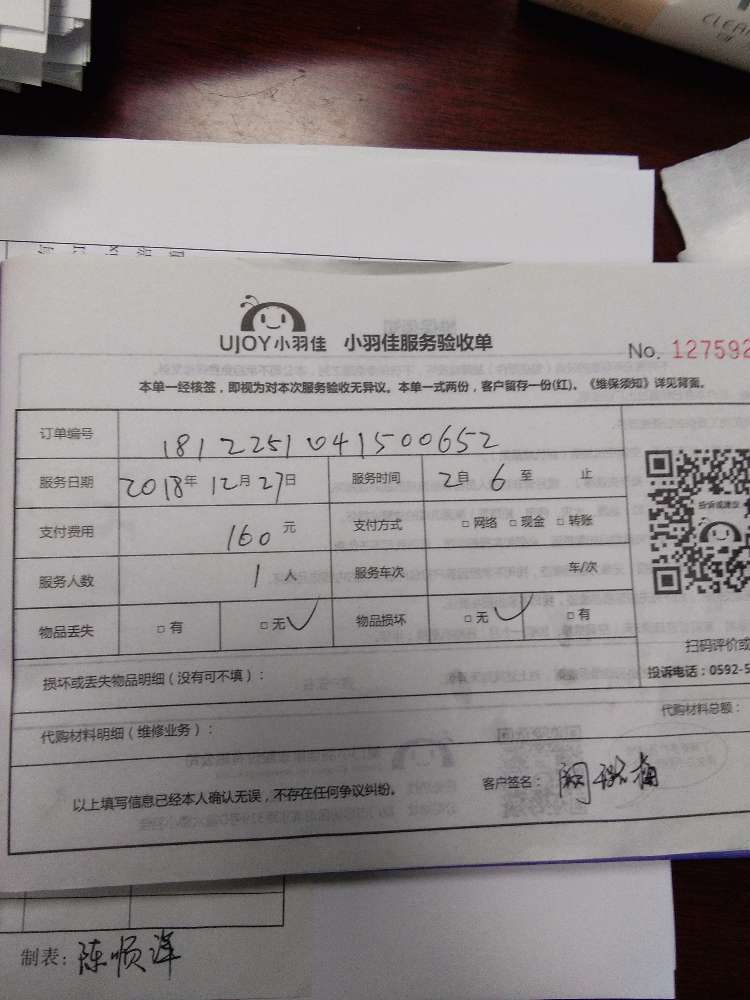 CLEA
UJOY小羽佳 小羽佳服务验收单
No. 127592
本单一经核签，即视为对本次服务验收无异议。本单一式两份，客户留存一份(红)。《维保须知》详见背面。
订单编号 181225104150065 2
服务日期 2018年 12月 27日 服务时间 2自 6至 止
支付费用 160 元 支付方式 □ 网络 □ 现金 □ 转账
服务人数 1 人 服务车次 车/次
物品丢失 □ 有 □ 无✓ 物品损坏 □ 无✓ □ 有
投诉或建议
扫码评价或
投诉电话：0592-5
损坏或丢失物品明细（没有可不填）：
代购材料明细（维修业务）：
代购材料总额：
以上填写信息已经本人确认无误，不存在任何争议纠纷。
客户签名：
制表：陈顺洋